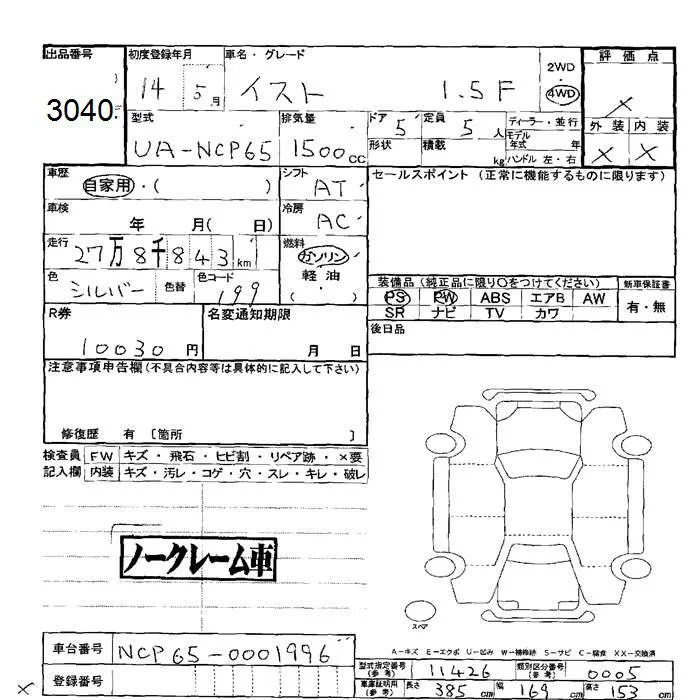 出品番号 初度登録年月 車名・グレード 評価点
3040 14 5月 イスト 1.5F 2WD ・ 4WD ×
型式 排気量 ドア 5 定員 5人 ディーラー・並行 外装 内装
UA-NCP65 1500cc 形状 積載 kg モデル年式 年 × ×
ハンドル 左・右
車歴 自家用・( ) シフト AT セールスポイント (正常に機能するものに限ります)
車検 年 月( 日) 冷房 AC
走行 27万8千843km 燃料 ガソリン
軽油
( ・ )
色 シルバー 色替 色コード 199 装備品(純正品に限り○をつけてください) 新車保証書
PS PW ABS エアB AW 有・無
SR ナビ TV カワ
R券 10030円 名変通知期限 月 日 後日品
注意事項申告欄(不具合内容等は具体的に記入して下さい)
修復歴 有 [箇所 ]
検査員 FW キズ・飛石・ヒビ割・リペア跡・×要
記入欄 内装 キズ・汚レ・コゲ・穴・スレ・キレ・破レ
ノークレーム車
スペア
A-キズ E-エクボ U-凹み W-補修跡 S-サビ C-腐食 XX-交換済
車台番号 NCP65-0001996 型式指定番号(参考) 11426 類別区分番号(参考) 0005
× 登録番号 車庫証明用(参考) 長さ 385cm 幅 169cm 高さ 153cm